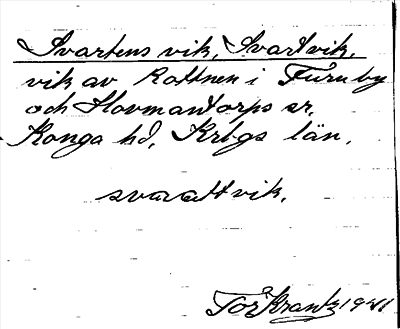 Svartens vik, Svartvik,
vik av Rottnen i Furuby
och Hovmantorps sr,
Konga hd, Krbgs län.
svaattvik.
Tor Krantz 1941